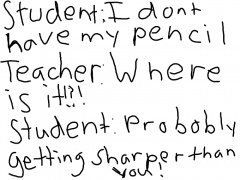 Student: I dont
have my pencil
Teacher: Where
is it!?!
Student: Probobly
getting sharper than
you!